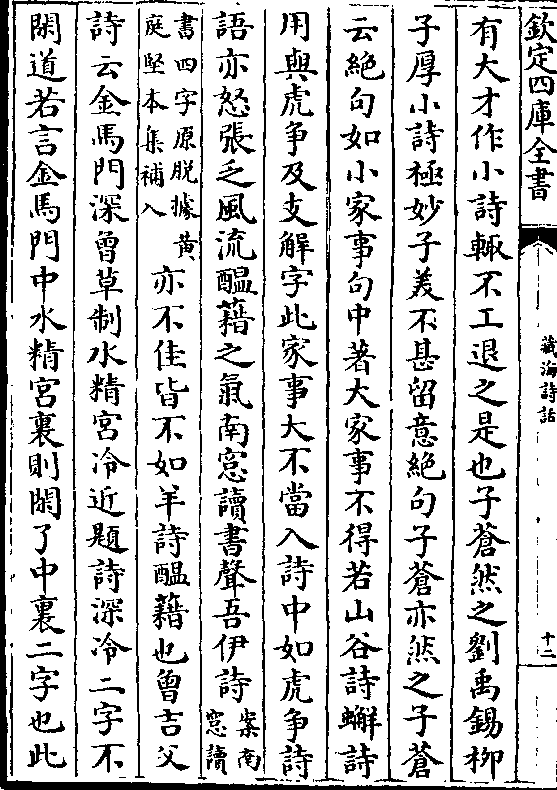 欽定四庫全書
藏海詩話
十二
有大才作小詩輙不工退之是也子蒼然之劉禹錫柳
子厚小詩極妙子美不甚留意絶句子蒼亦然之子蒼
云絶句如小家事句中著大家事不得若山谷詩蠏詩
用與虎争及支解字此家事大不當入詩中如虎争詩
語亦怒張乏風流醖藉之氣南窓讀書聲吾伊詩案南窓讀
書四字原脱據黄庭堅本集補入亦不佳皆不如羊詩醖藉也曾吉父
詩云金馬門深曾草制水精宫冷近題詩深冷二字不
閑道若言金馬門中水精宫裏則閑了中裏二字也此